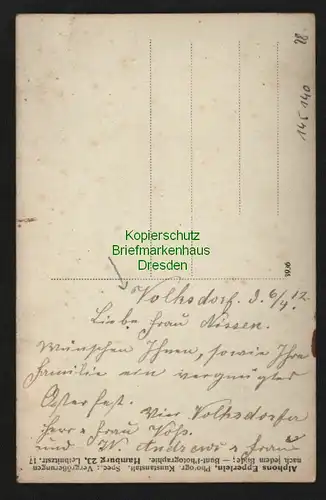 28
145 140
Kopierschutz
Briefmarkenhaus
Dresden
Volksdorf. d. 6/4. 12.
Liebe Frau Nissen.
Wünschen Ihnen, sowie Ihre
Familie ein vergnügtes
Osterfest.
Vier Volksdorfer
Herr & Frau Voss.
und W. Andresen & Frau
Alphons Epperlein, Photogr. Kunstanstalt. Hamburg 23, Leibnitzstr. 17
nach jedem Bilde; — Bunt-Photographie. Spec.: Vergrößerungen